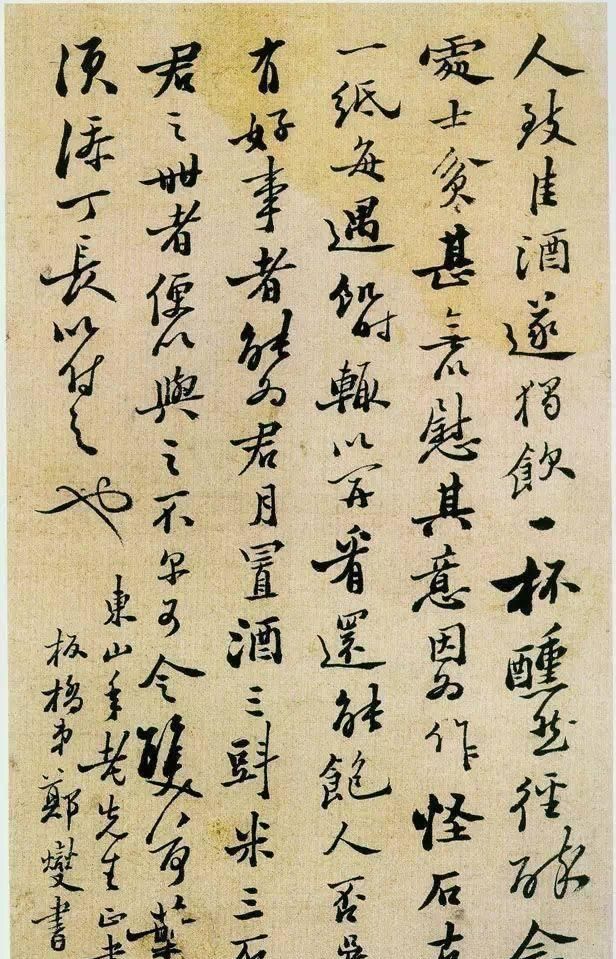 人致佳酒遂獨飲一杯醺然徑醉念
處士貧甚無以慰其意因為作怪石古
一紙每遇飢時輒以開看還能飽人否吳
有好事者能為君月置酒三㪷米三石
君之世者便以與之不尔可令雙荷葉
須添丁長以付之也
東山年老先生正
板橋弟鄭燮書